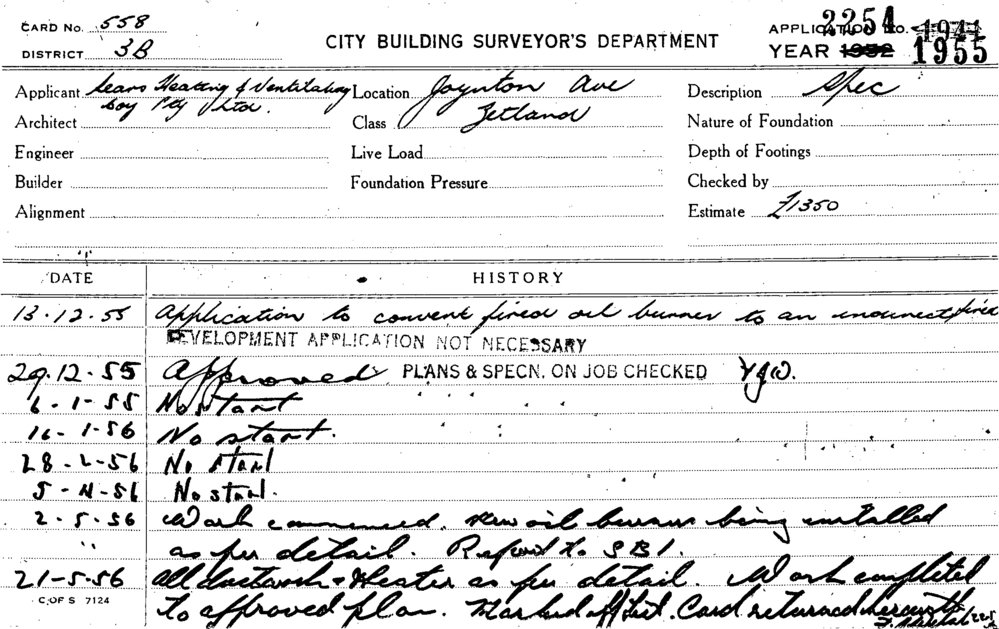 CARD No. 558
DISTRICT 3B
CITY BUILDING SURVEYOR'S DEPARTMENT
APPLICATION No. 2254 -1944
YEAR 1952 1955
Applicant Sears Heating & Ventilating Location Joynton Ave Description Spec
Coy Pty Ltd.
Architect Class Zetland Nature of Foundation
Engineer Live Load Depth of Footings
Builder Foundation Pressure Checked by
Alignment Estimate £1350
DATE HISTORY
13.12.55 Application to convert fired oil burner to an indirect fired
DEVELOPMENT APPLICATION NOT NECESSARY
29.12.55 Approved PLANS & SPECN. ON JOB CHECKED
6-1-55 No start
16-1-56 No start.
28-2-56 No start
5-4-56 No start.
2-5-56 Work commenced. New oil burner being installed
" as per detail. Refund to SBI.
21-5-56 All ductwork & Heater as per detail. Work completed
to approved plan. Marked off List. Card returned herewith
C OF S 7124